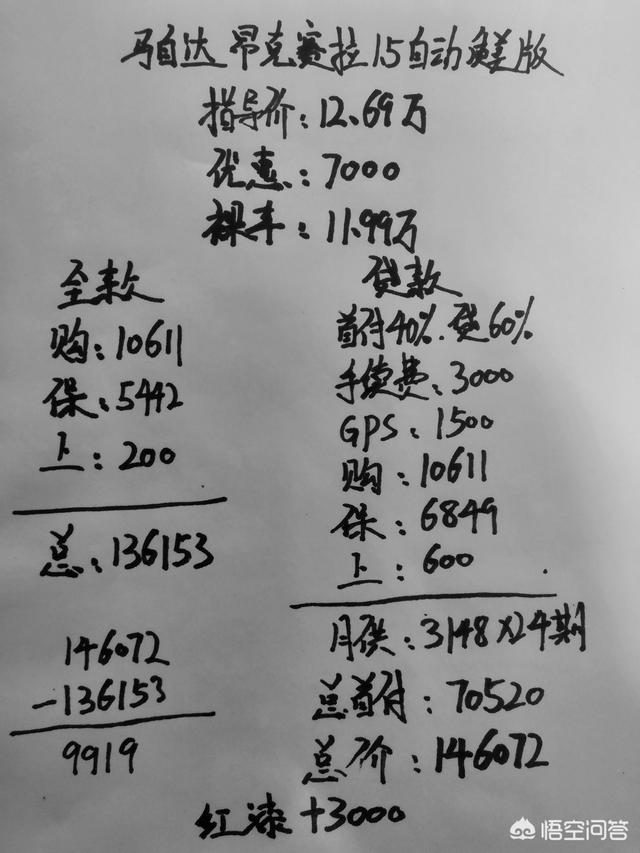 马自达 昂克赛拉1.5自动尊美版
指导价:12.69万
优惠:7000
裸车:11.99万
全款
购:10611
保:5442
上:200
总:136153
146072
-136153
9919
贷款
首付40%.贷60%
手续费:3000
GPS:1500
购:10611
保:6849
上:600
月供:3148×24期
总首付:70520
总价:146072
红漆+3000
悟空问答